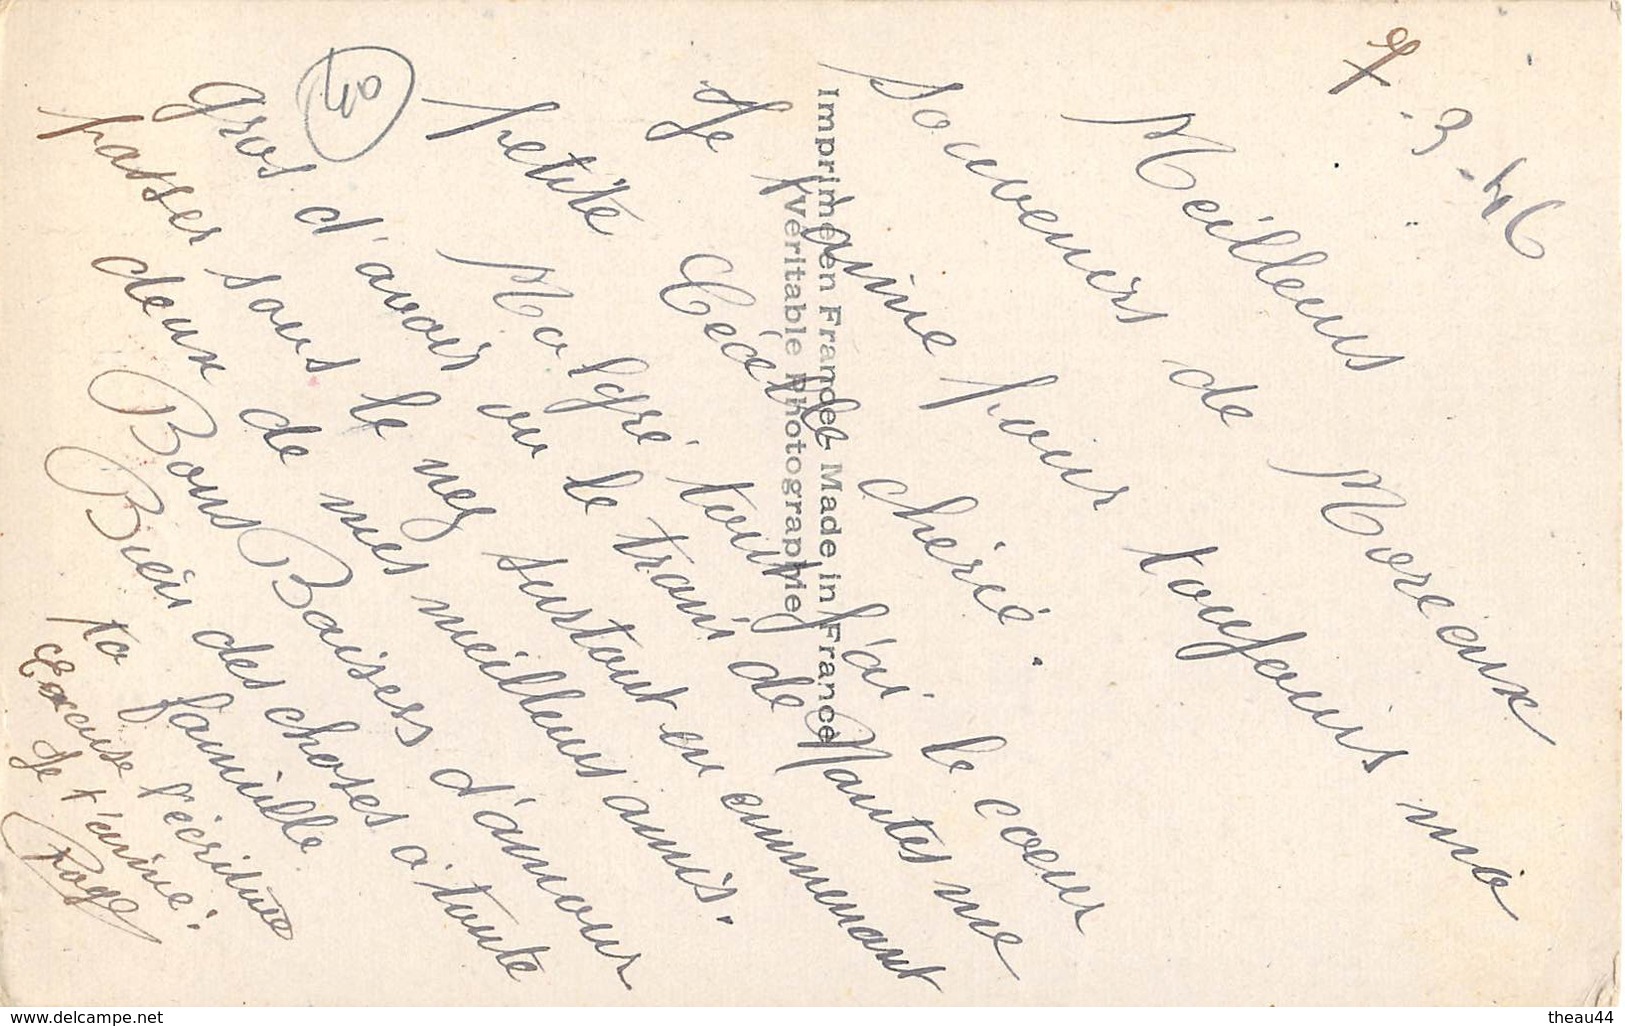 7-3-46
Meilleurs
Souvenirs de Moreaux
Je t'aime pour toujours ma
petite Cécile chérie.
Malgré tout j'ai le coeur
gros d'avoir vu le train de Nantes me
passer sous le nez surtout en emmenant
deux de mes meilleurs amis.
Bons Baisers d'amour
Bien des choses a toute
ta famille
Excuse l'écriture
Je t'aime!
Roger
Imprimé en France - Made in France
Véritable Photographie
www.delcampe.net
theau44